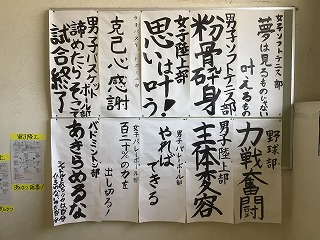 女子ソフトテニス部
夢は見るものじゃない
叶えるもの
男子ソフトテニス部
粉骨砕身
女子陸上部
思いは叶う!
克己心感謝
男子バスケットボール部
諦めたらそこで
試合終了!
野球部
力戦奮闘
男子陸上部
主体変容
男子バレーボール部
やれば
できる
女子バレーボール部
百二十%の力を
出しきる!
バドミントン部
あきらめるな